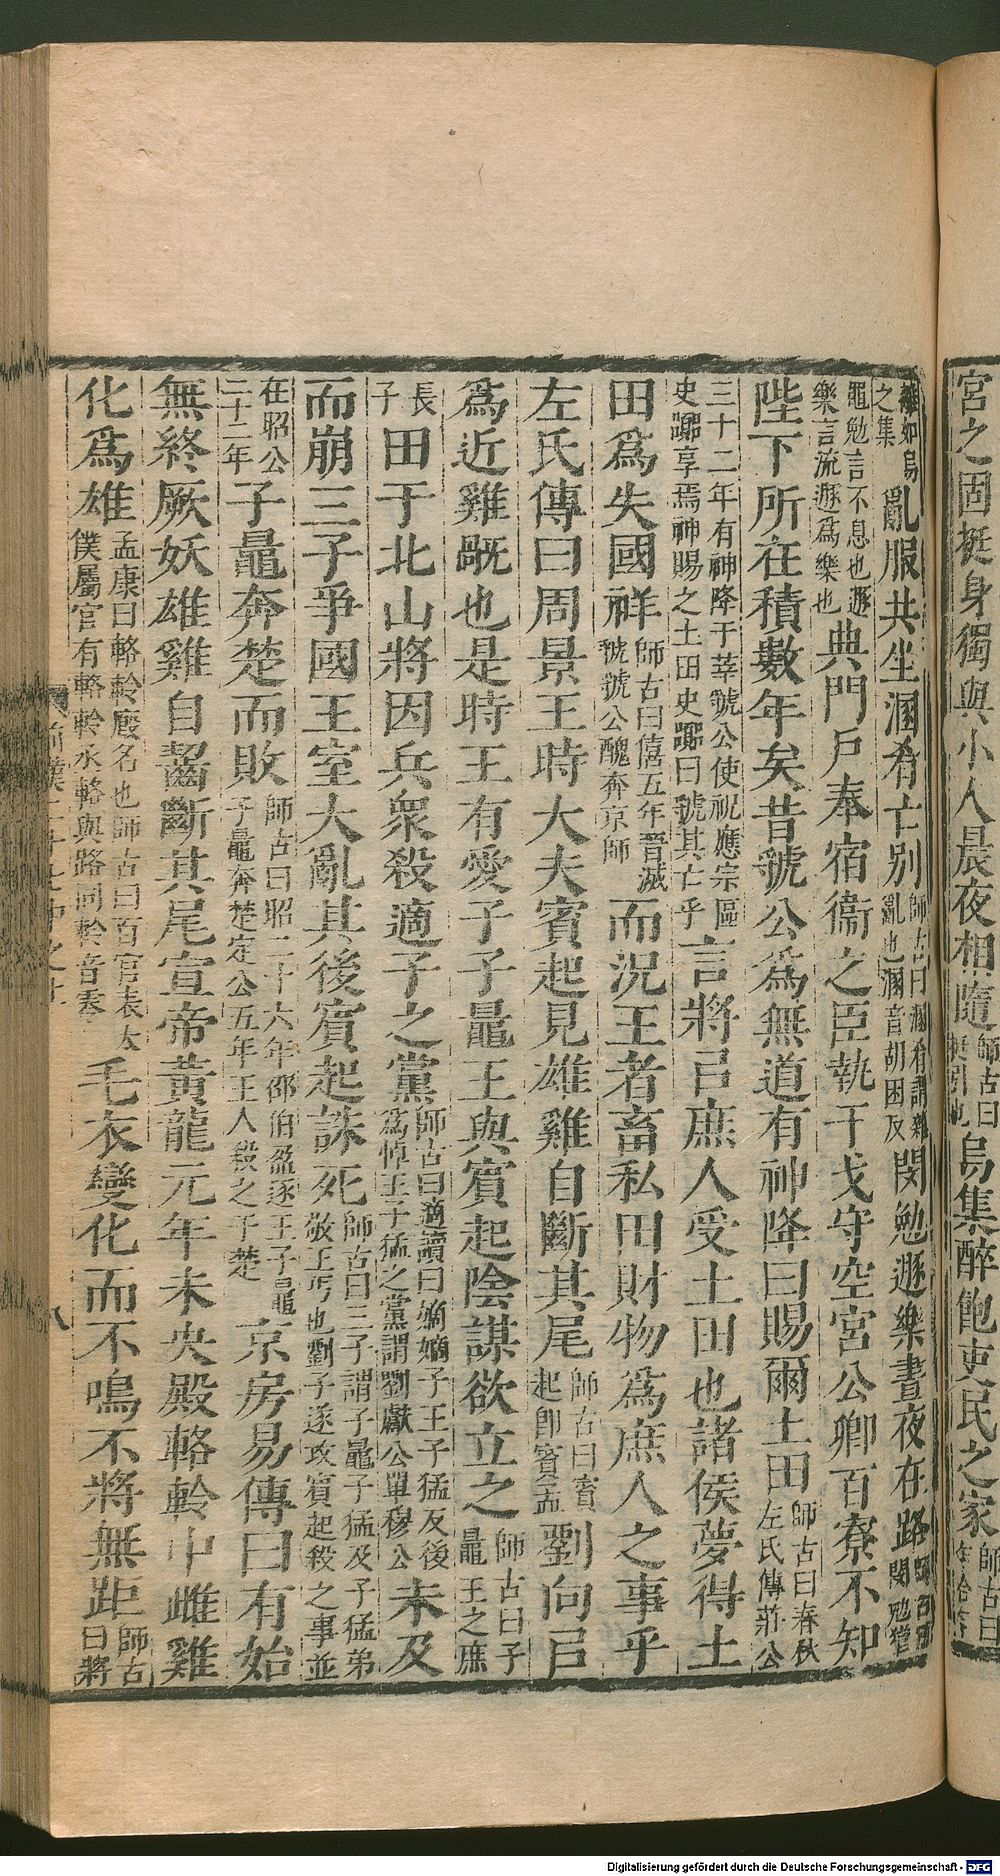 宮之固挺身獨與小人晨夜相隨師古曰挺引也烏集醉飽吏民之家師古曰
雜如烏之集亂服共坐溷肴亡別師古曰溷肴謂雜亂也溷音胡困反閔勉遯樂晝夜在路師古曰閔勉猶
黽勉言不息也遯樂言流遯爲樂也典門戶奉宿衞之臣執干戈守空宮公卿百寮不知
陛下所在積數年矣昔虢公爲無道有神降曰賜爾土田師古曰春秋左氏傳莊公
三十二年有神降于莘虢公使祝應宗區史嚚享焉神賜之土田史嚚曰虢其亡乎言將㠯庶人受土田也諸侯夢得土
田爲失國祥師古曰僖五年晉滅虢虢公醜奔京師而況王者畜私田財物爲庶人之事乎
左氏傳曰周景王時大夫賓起見雄雞自斷其尾師古曰賓起卽賓孟劉向㠯
爲近雞旤也是時王有愛子子鼂王與賓起陰謀欲立之師古曰子鼂王之庶
長子田于北山將因兵衆殺適子之黨師古曰適讀曰嫡嫡子王子猛及後爲悼王子猛之黨謂劉獻公單穆公未及
而崩三子爭國王室大亂其後賓起誅死師古曰三子謂子鼂子猛及子猛弟敬王丐也劉子遂攻賓起殺之事並
在昭公二十二年子鼂奔楚而敗師古曰昭二十六年邵伯盈逐王子鼂子鼂奔楚定公五年王人殺之于楚京房易傳曰有始
無終厥妖雄雞自齧斷其尾宣帝黃龍元年未央殿輅軨中雌雞
化爲雄孟康曰輅軨廏名也師古曰百官表太僕屬官有輅軨丞輅與路同軨音零毛衣變化而不鳴不將無距師古曰將
八
Digitalisierung gefördert durch die Deutsche Forschungsgemeinschaft - DFG